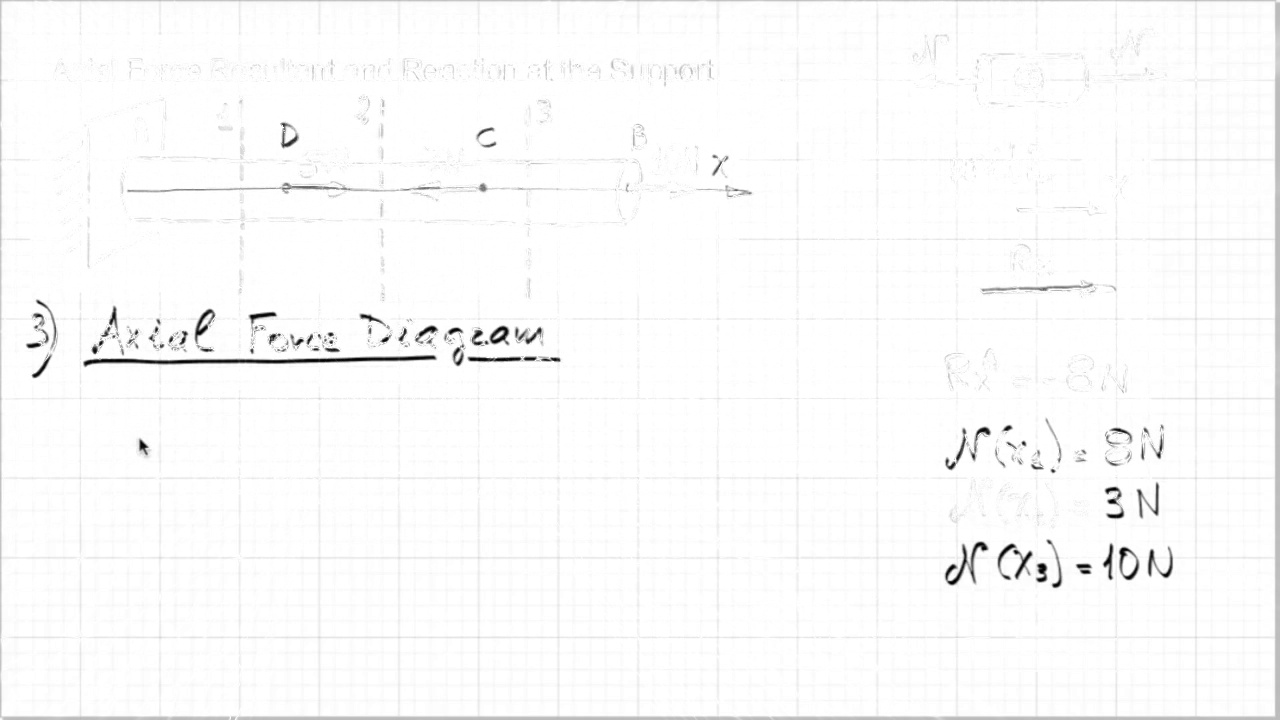 Axial Force Resultant and Reaction at the Support
1 2 3
D C B x
5N 7N 10N
N N
3) Axial Force Diagram
RxA = -8N
N(x1) = 8N
N(x2) = 3N
N(x3) = 10N